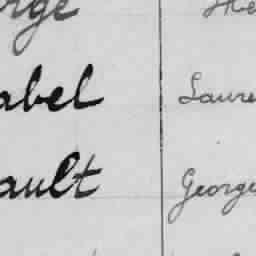 orge He
abel Laure
ault George